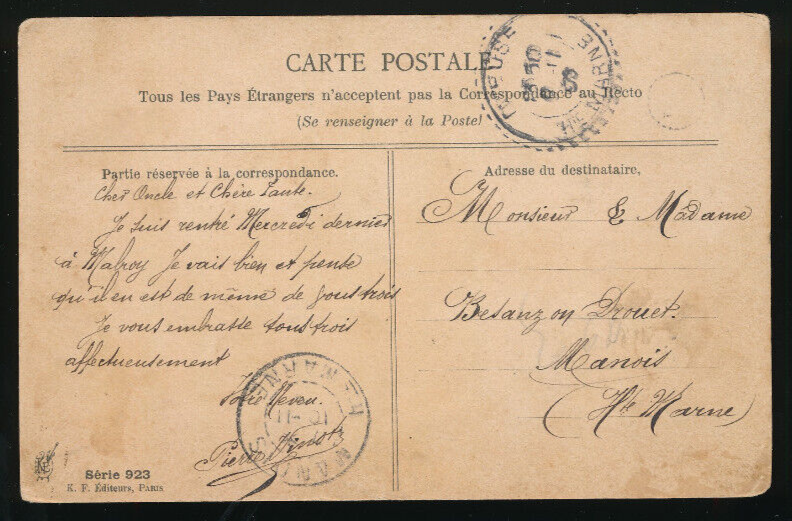 CARTE POSTALE
Tous les Pays Étrangers n'acceptent pas la Correspondance au Recto
(Se renseigner à la Poste)
Partie réservée à la correspondance.
Cher Oncle et Chère Tante.
Je suis rentré Mercredi dernier
à Malroy Je vais bien et pense
qu'il en est de même de vous trois
Je vous embrasse tous trois
affectueusement
Votre Neveu
Pierre
Série 923
K. F. Éditeurs, PARIS
Adresse du destinataire,
Monsieur & Madame
Besanzon Drouet.
Manois
(Hte Marne)
MEUSE
Hte MARNE
10 -11
MANOIS
Hte MARNE
10 -11